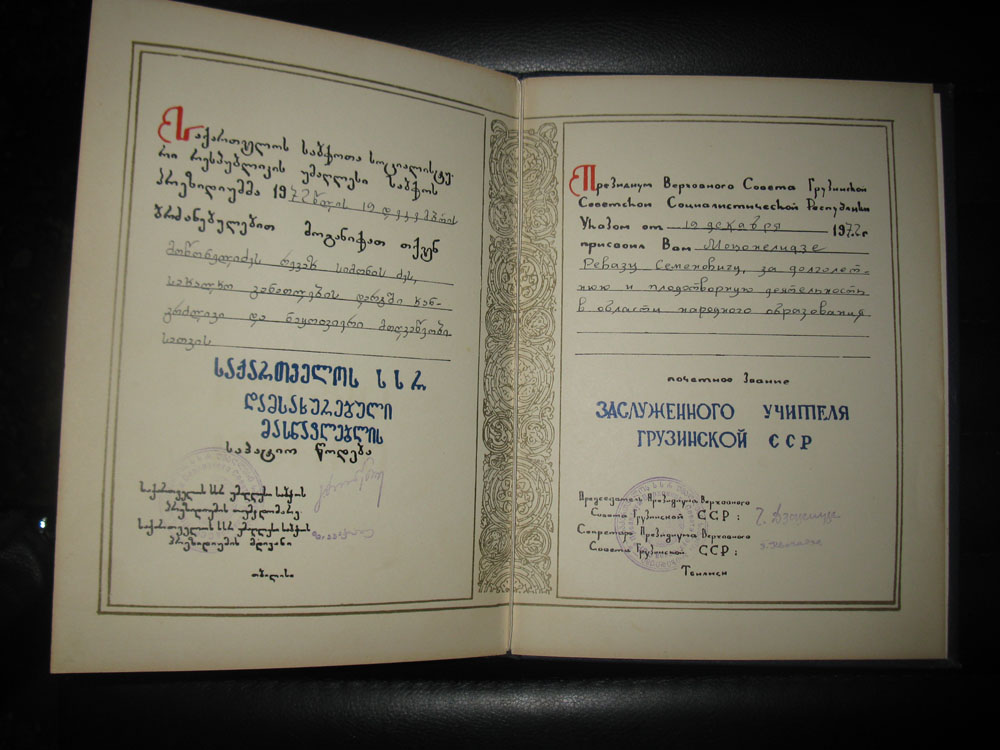 საქართველოს საბჭოთა სოციალისტუ-
რი რესპუბლიკის უმაღლესი საბჭოს
პრეზიდიუმმა 1972 წლის 19 დეკემბრის
ბრძანებულებით მოგანიჭათ თქვენ
მოწონელიძეს რევაზ სიმონის ძეს,
სახალხო განათლების დარგში ხან-
გრძლივი და ნაყოფიერი მოღვაწეობი-
სათვის
საქართველოს სსრ
დამსახურებული
მასწავლებლის
საპატიო წოდება
საქართველოს სსრ უმაღლესი საბჭოს
პრეზიდიუმის თავმჯდომარე
საქართველოს სსრ უმაღლესი საბჭოს
პრეზიდიუმის მდივანი
თბილისი
Президиум Верховного Совета Грузинской
Советской Социалистической Республики
Указом от 19 декабря 1972 г
присвоил Вам Моцонелидзе
Ревазу Семеновичу, за долголет-
нюю и плодотворную деятельность
в области народного образования
почетное звание
ЗАСЛУЖЕННОГО УЧИТЕЛЯ
ГРУЗИНСКОЙ ССР
Председатель Президиума Верховного
Совета Грузинской ССР: Г. Дзоценидзе
Секретарь Президиума Верховного
Совета Грузинской ССР:
Тбилиси